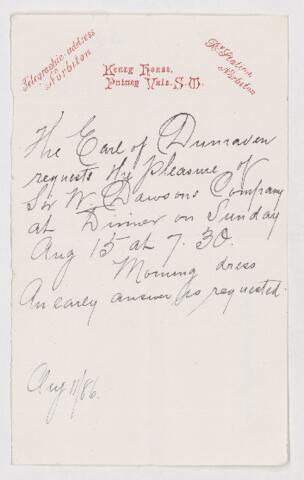 Telegraphic address
Norbiton
Kenry House,
Putney Vale. S.W.
Ry. Station,
Norbiton
The Earl of Dunraven
requests the pleasure of
Sir W. Dawsons Company
at Dinner on Sunday
Aug 15 at 7.30.
Morning dress
An early answer is requested.
Aug 11/86.